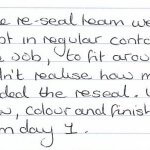 e re-seal team we
pt in regular conta
e job, to fit arou
dn't realise how m
ded the reseal. U
w, colour and finish
m day 1.